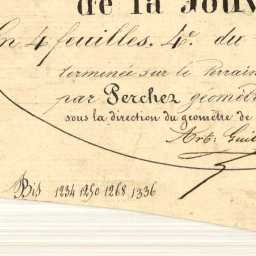 de la Jouv
En 4 feuilles. 4e. du
terminée sur le Terrain
par Perchez géomèt
sous la direction du géomètre de
Art: Guil
Bis 1234 1250 1268 1336